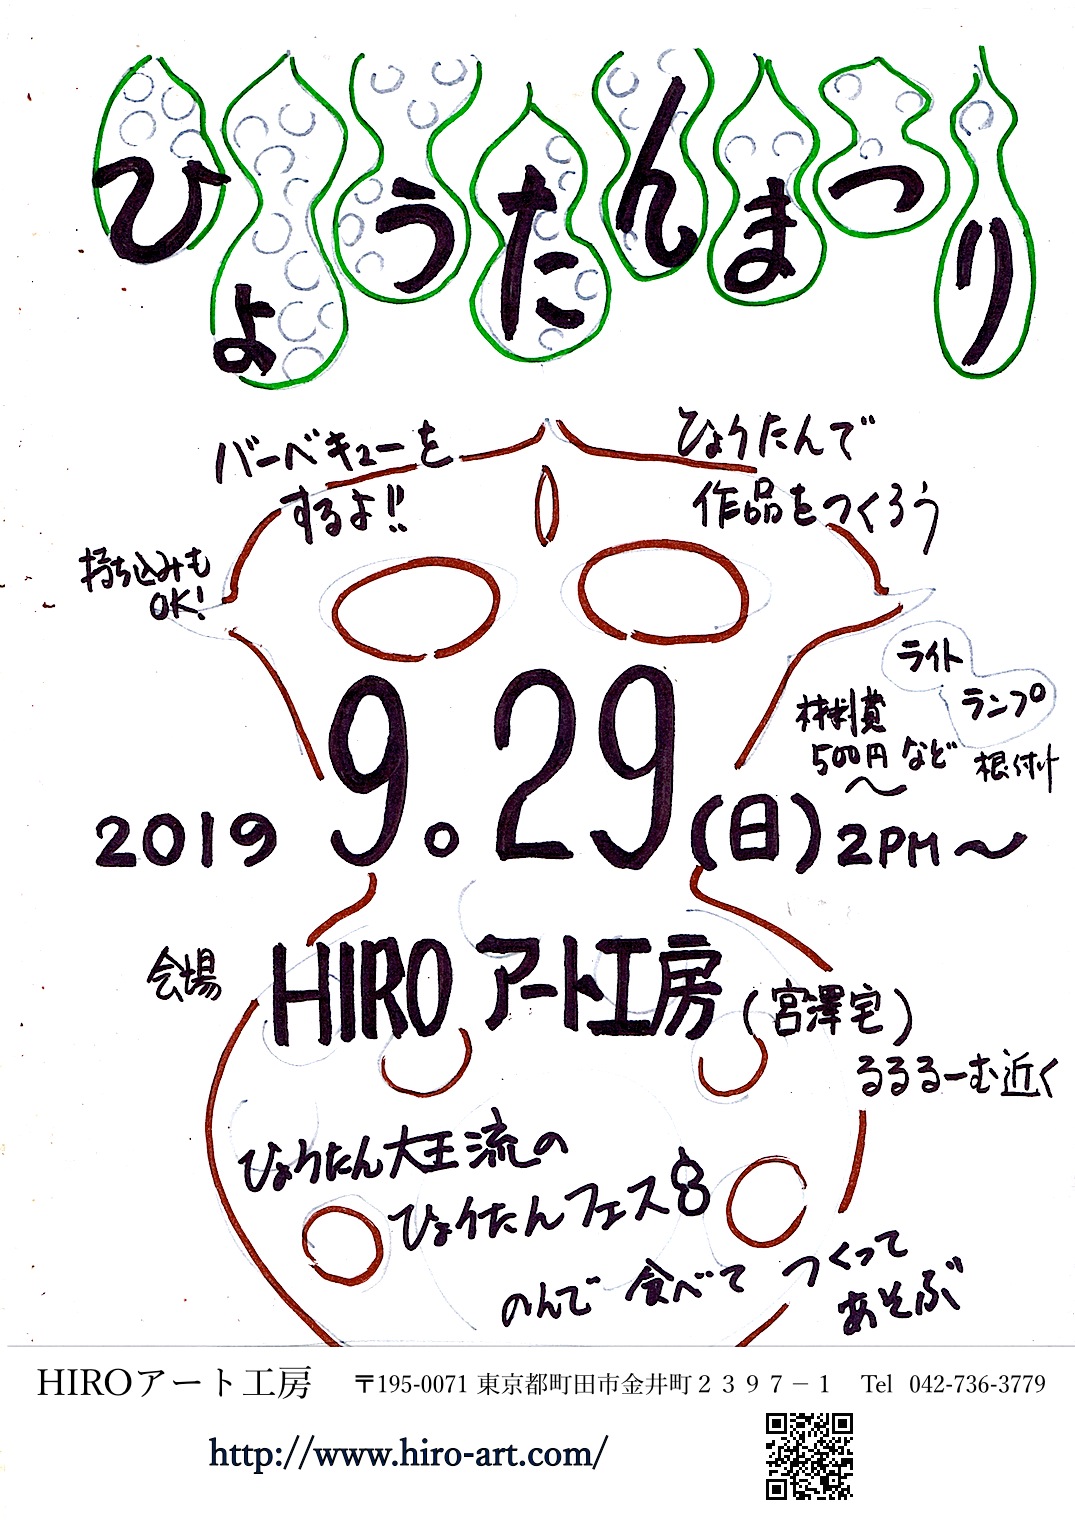 ひょうたんまつり
バーベキューを
するよ!!
ひょうたんで
作品をつくろう
持ち込みも
OK!
ライト
ランプ
根付け
など
材料賞
500円
〜
2019 9.29(日)2PM〜
会場 HIROアート工房(宮澤宅)
るるるーむ近く
ひょうたん大王流の
ひょうたんフェス8
のんで 食べて つくって
あそぶ
HIROアート工房 〒195-0071 東京都町田市金井町2397−1 Tel 042-736-3779
http://www.hiro-art.com/